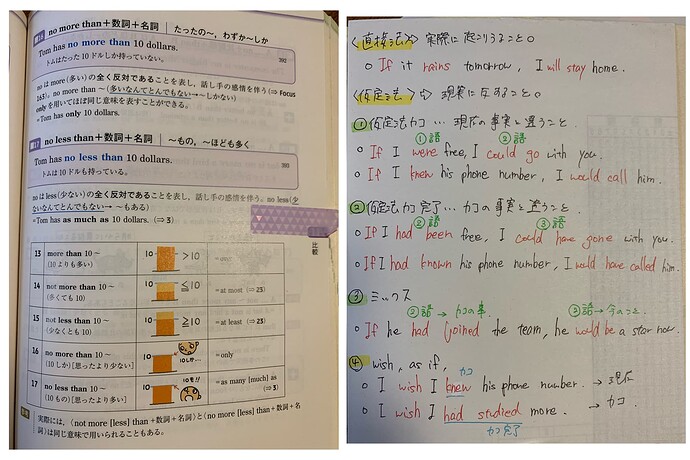 no more than＋数詞＋名詞 たったの〜，わずか〜しか
Tom has no more than 10 dollars.
トムはたった 10 ドルしか持っていない。
392
no は more（多い）の全く反対であることを表し，話し手の感情を伴う（⇒ Focus
163）。no more than 〜（多いなんてとんでもない→〜しかない）
only を用いてほぼ同じ意味を表すことができる。
＝Tom has only 10 dollars.
17 no less than＋数詞＋名詞 〜もの，〜ほども多く
Tom has no less than 10 dollars.
トムは 10 ドルも持っている。
393
no は less（少ない）の全く反対であることを表し，話し手の感情を伴う。no less（少
ないなんてとんでもない → 〜もある）
＝Tom has as much as 10 dollars.（⇒ 3）
比較
13 more than 10 〜
（10 よりも多い）
10 ＞10 ＝over
14 not more than 10 〜
（多くても 10）
10 ≦10 ＝at most（⇒ 23）
15 not less than 10 〜
（少なくとも 10）
10 ≧10 ＝at least（⇒ 23）
16 no more than 10 〜
（10 しか）[思ったより少ない]
10 10しか… ＝only
17 no less than 10 〜
（10 もの）[思ったより多い]
10 10も!! ＝as many [much] as
（⇒ 3）
実際には，〈not more [less] than＋数詞＋名詞〉と〈no more [less] than＋数詞＋名
詞〉は同じ意味で用いられることもある。
〈直接法〉⇨ 実際に起こりうること。
○ If it rains tomorrow, I will stay home.
〈仮定法〉⇨ 現実に反すること。
①仮定法カコ … 現在の事実と違うこと.
①語 ②語
○ If I were free, I could go with you.
○ If I knew his phone number, I would call him.
②仮定法カコ完了 … カコの事実と違うこと.
②語 ③語
○ If I had been free, I could have gone with you.
○ If I had known his phone number, I would have called him.
③ ミックス
②語 → カコの事. ②語 → 今のこと.
○ If he had joined the team, he would be a star now.
④ wish, as if,
カコ
○ I wish I knew his phone number. → 現在
○ I wish I had studied more. → カコ
カコ完了